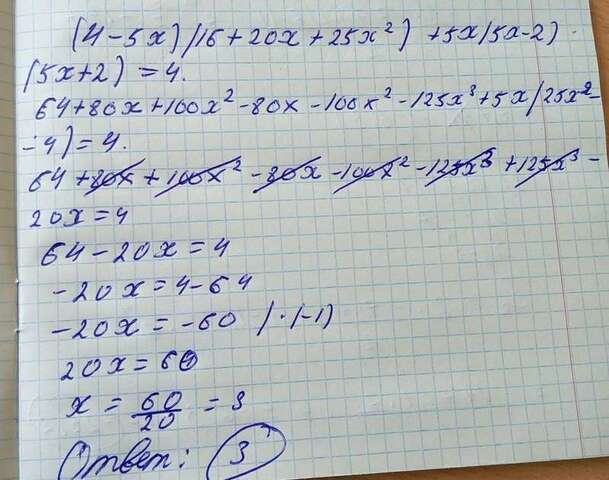 (4-5x)(16+20x+25x²)+5x(5x-2)·
(5x+2)=4.
64+80x+100x²-80x-100x²-125x³+5x(25x²-
-4)=4.
64+80x+100x²-80x-100x²-125x³+125x³-
20x=4
64-20x=4
-20x=4-64
-20x=-60 |·(-1)
20x=60
x=60/20=3
Ответ: 3